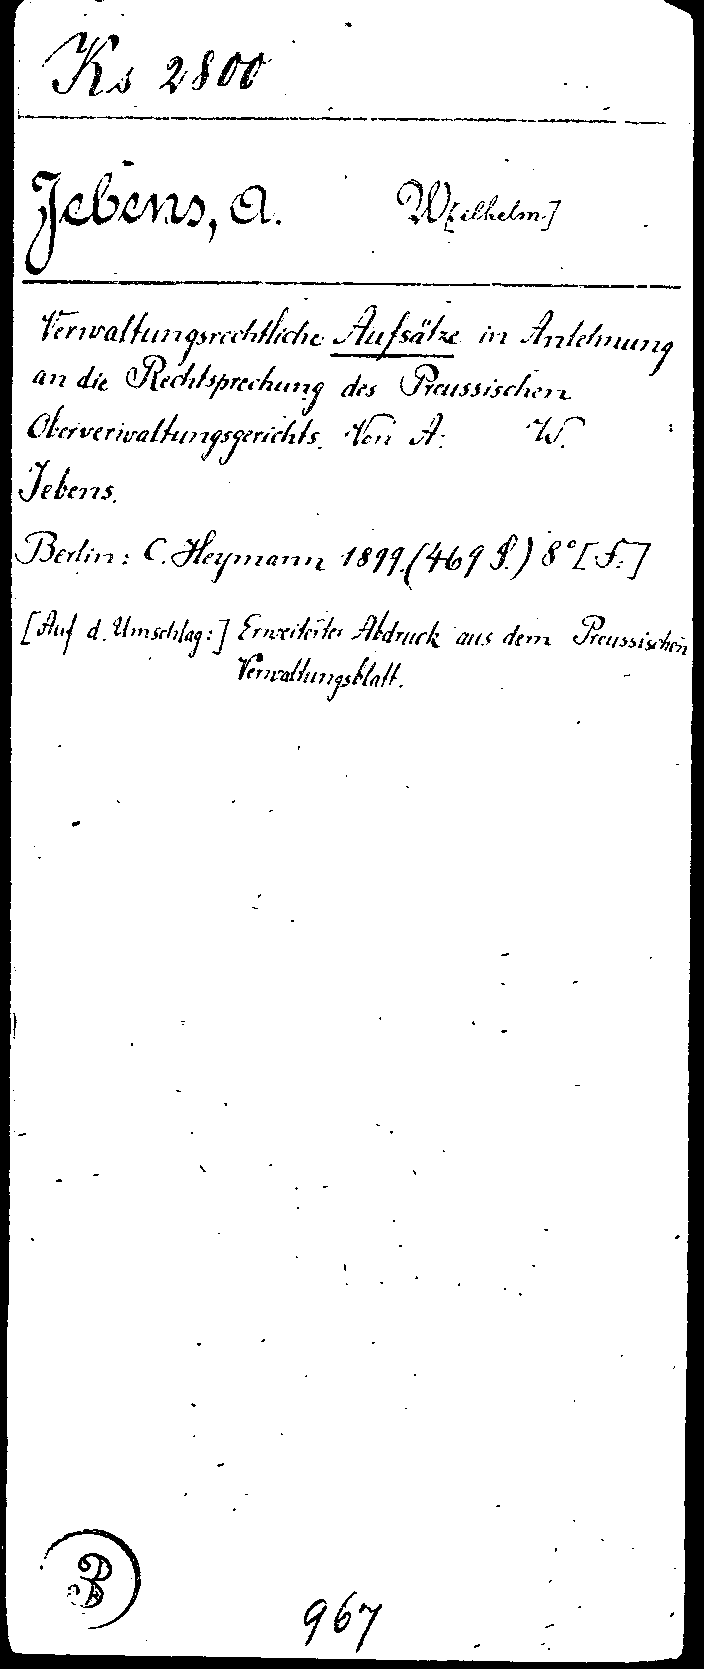 Ks 2800
Jebens, A. W[ilhelm.]
Verwaltungsrechtliche Aufsätze in Anlehnung
an die Rechtsprechung des Preussischen
Oberverwaltungsgerichts. Von A. W.
Jebens.
Berlin: C. Heymann 1899. (469 S.) 8° [F.]
[Auf d. Umschlag:] Erweiterter Abdruck aus dem Preussischen
Verwaltungsblatt.
B
967